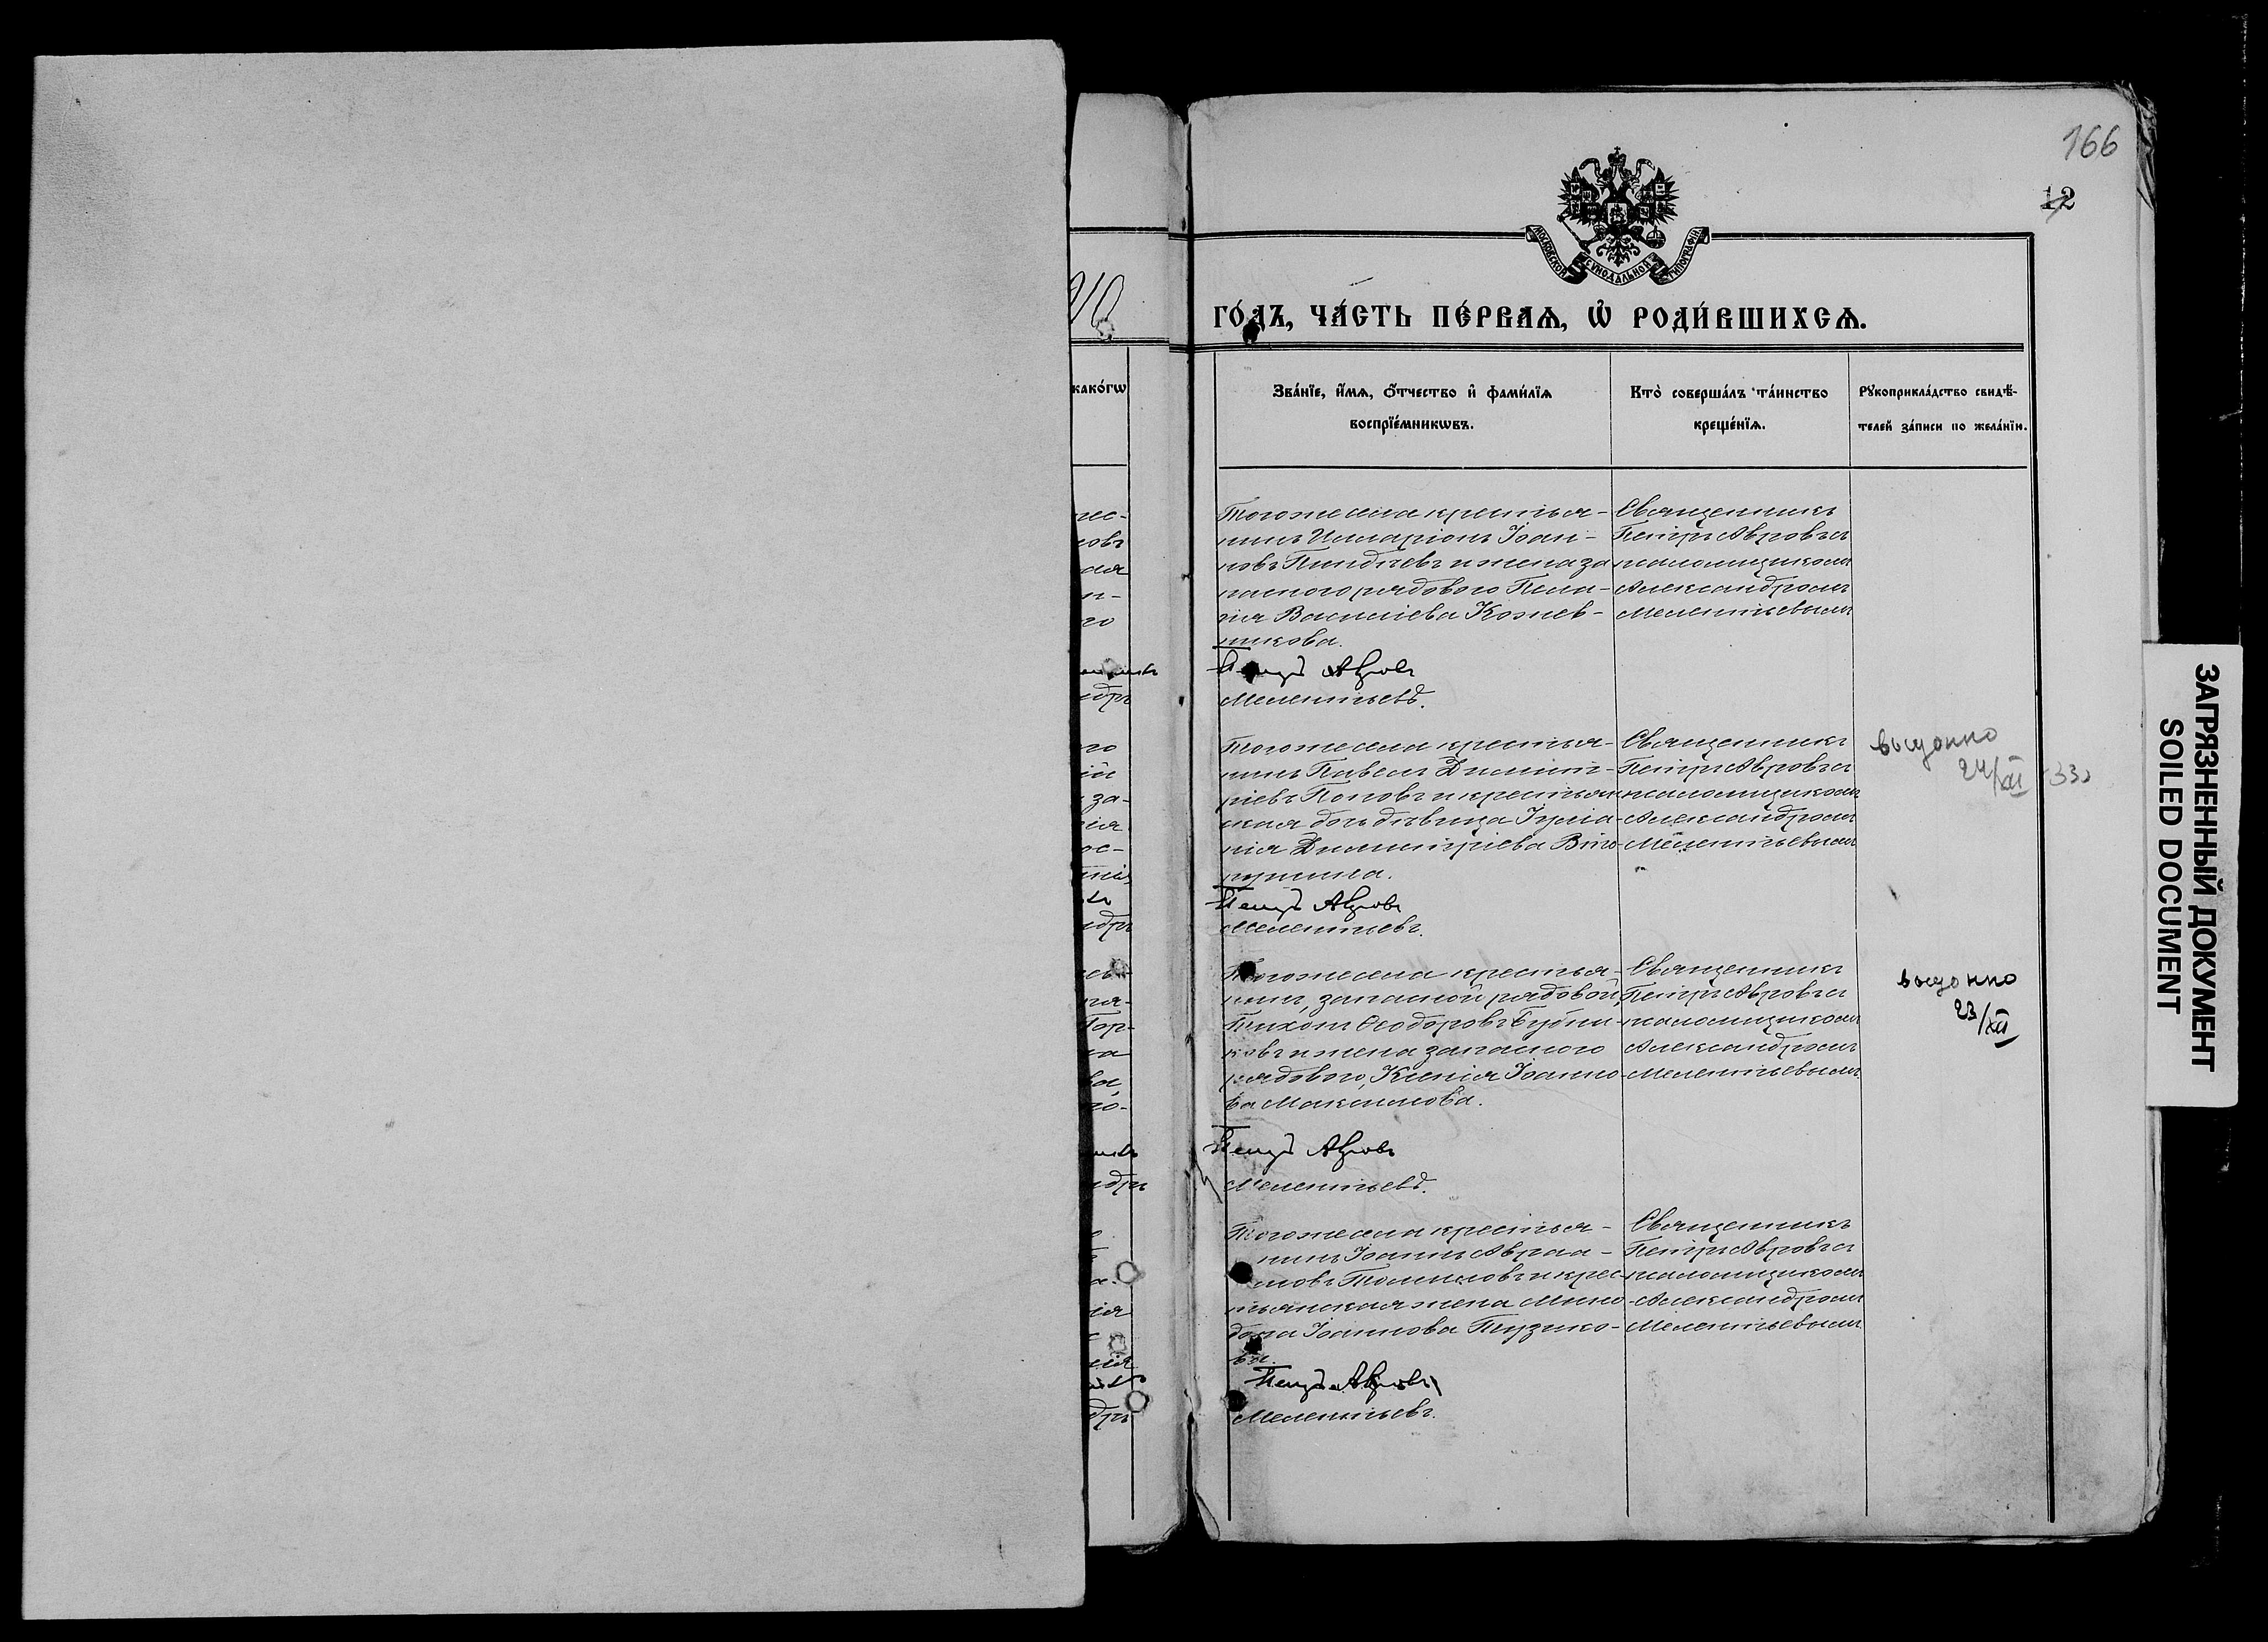 166
12
МОСКОВСКОЙ СѴНОДАЛЬНОЙ ТИПОГРАФІИ
ГО́ДЪ, ЧА́СТЬ ПЕ́РВАѦ, Ѡ҆ РОДИ́ВШИХСѦ.
како́гѡ
Зва́нїе, и҆́мѧ, ѻ҆́тчество и҆ фами́лїѧ
воспрїе́мникѡвъ.
Кто̀ соверша́лъ та́инство
креще́нїѧ.
Рꙋкоприкла́дство свидѣ́-
телей за́писи по жела́нїи.
Тогоже села крестья-
нинъ Илларіонъ Іоан-
новъ Пиндевъ и жена за
паснаго рядового Пела-
гія Василіева Кожев-
никова.
Петръ Авровъ
Мелентьевъ.
Священникъ
Петръ Авровъ съ
псаломщикомъ
Александромъ
Мелентьевымъ
Тогоже села крестья-
нинъ Павелъ Димит-
ріевъ Поповъ и крестьян
ская дочь дѣвица Іуліа-
нія Димитріева Вто
рушина.
Петръ Авровъ
Мелентьевъ.
Священникъ
Петръ Авровъ съ
псаломщикомъ
Александромъ
Мелентьевымъ
выдонно
24/XII 33
Тогоже села крестья-
нинъ, запасной рядовой,
Тихонъ Ѳеодоровъ Бубни-
ковъ и жена запасного
рядового, Ксенія Іоанно-
ва Максимова.
Петръ Авровъ
Мелентьевъ.
Священникъ
Петръ Авровъ съ
псаломщикомъ
Александромъ
Мелентьевымъ
выдонно
23/XII
Тогоже села крестья-
нинъ Іоаннъ Авраа-
мовъ Томиловъ и крес-
тьянская жена Мино
дора Іоаннова Пузико-
ва.
Петръ Авровъ
Мелентьевъ.
Священникъ
Петръ Авровъ съ
псаломщикомъ
Александромъ
Мелентьевымъ
ЗАГРЯЗНЕННЫЙ ДОКУМЕНТ
SOILED DOCUMENT